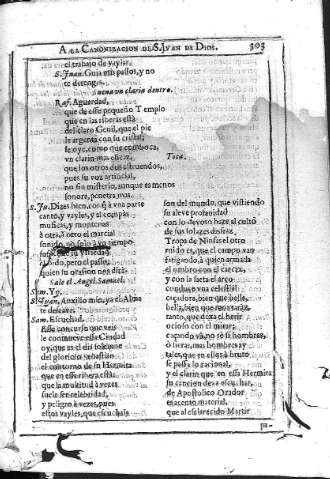 A LA CANONIZACION DE S. IVAN DE DIOS. 303
el trabajo de vaylar.
S. Juan. Guia mis passos, y no
te detengas.
Suena vn clarin dentro.
Raf. Aguardad,
que de esse pequeño Templo
que en las riberas està
del claro Genil, que el pie
le argenta con su cristal;
se oye, como que comboca,
vn clarin mas eficaz, Toca.
que los otros dos estruendos,
pues su voz marcial,
no sin misterio, aunque es menos
sonora, penetra mas.
S. Ju. Dizes bien, con q̃ à vna parte
canto, y vayles, y al compàs
musicas, y monteros
à otra, pero el marcial
sonido, no solo à vn tiempo
oido, pero el passo;
quien su ocasion nos dirà
Sale el Angel Samuel.
Sam. Yo.
S. Juan. Auxilio mio, ya el Alma
te desea ver.
Sam. Escuchad.
Esse concurso que veis
le conmueve essa Ciudad
oy que es el dia solemne
del glorioso Sebastian
el contorno de su Hermita
que en essa ribera està:
que la multitud à vezes
suele ser celebridad,
y peligro à vezes, pues
estos vayles, que escuchais
son del mundo, que vistiendo
su aleve profanidad
con lo devoto haze al culto
de sus solazes disfraz.
Tropa de Ninfas el otro
ruido es, que el campo van
fatigando à quien armada
el ombro con el carcax,
y con la saeta al arco
cruel
caçadora, bien que bella,
bella, bien que montaraz,
tanto, que doxa el herir
ocioso con el mirar;
caçando và, no se si hombres,
ò fieras, mas hombres ay
tales, que en ellos à bruto
se passa lo racional,
y el clarin que en essa Hermita
su atencion deve escuchar,
de Apostolico Orador
es acento material,
que al esclarecido Martir